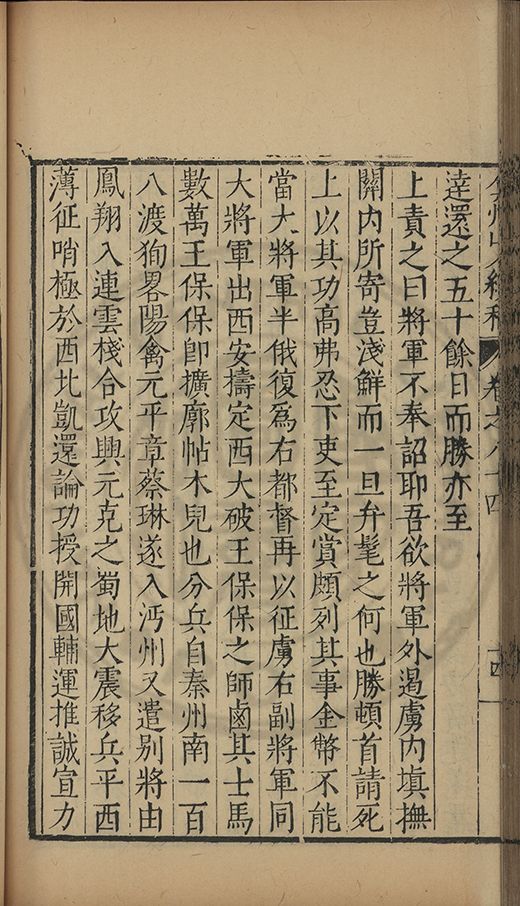 弇州山人續稿 卷之八十四 十四
逹還之五十餘日而勝亦至
上責之曰將軍不奉詔耶吾欲將軍外遏虜内塡撫
關内所寄豈淺鮮而一旦弁髦之何也勝頓首請死
上以其功高弗忍下吏至定賞頗列其事金幣不能
當大將軍半俄復爲右都督再以征虜右副將軍同
大將軍出西安擣定西大破王保保之師鹵其士馬
數萬王保保卽擴廓帖木兒也分兵自秦州南一百
八渡狥畧陽禽元平章蔡琳遂入沔州又遣别將由
鳳翔入連雲棧合攻興元克之蜀地大震移兵平西
薄征哨極於西北凱還論功授開國輔運推誠宣力